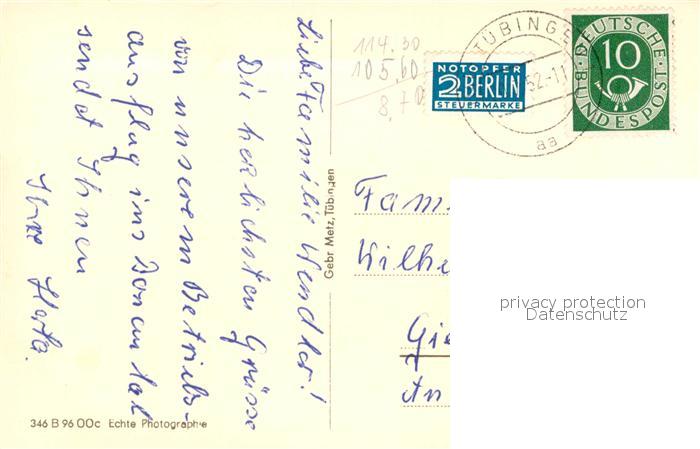 Liebe Familie Wendler!
Die herlichsten Grüsse
von unserem Betriebs-
ausflug ins Donautal
sendet Ihnen
Ihre Herta.
346 B 96 00c Echte Photographie
Gebr Metz, Tübingen
114.30
105.60
8,70
NOTOPFER
2 BERLIN
STEUERMARKE
TÜBINGE
52.-11
aa
DEUTSCHE
10
BUNDESPOST
Fam
Wilhe
Gie
An
privacy protection
Datenschutz